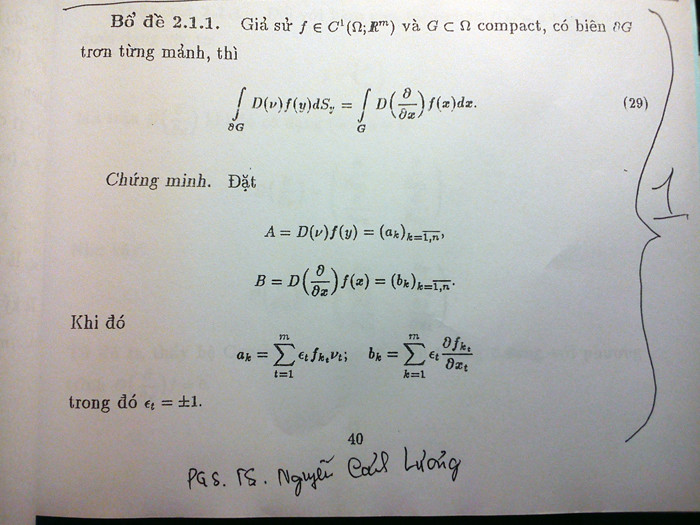 Bổ đề 2.1.1. Giả sử f ∈ C¹(Ω; ℝᵐ) và G ⊂ Ω compact, có biên ∂G
trơn từng mảnh, thì
∫_{∂G} D(ν)f(y)dS_y = ∫_G D(∂/∂x) f(x)dx. (29)
1
Chứng minh. Đặt
A = D(ν)f(y) = (a_k)_{k=\overline{1,n}},
B = D(∂/∂x) f(x) = (b_k)_{k=\overline{1,n}}.
Khi đó
a_k = ∑_{t=1}^{m} ϵ_t f_{k_t} ν_t; b_k = ∑_{k=1}^{m} ϵ_t ∂f_{k_t}/∂x_t
trong đó ϵ_t = ±1.
40
PGS. TS. Nguyễn Cảnh Lương